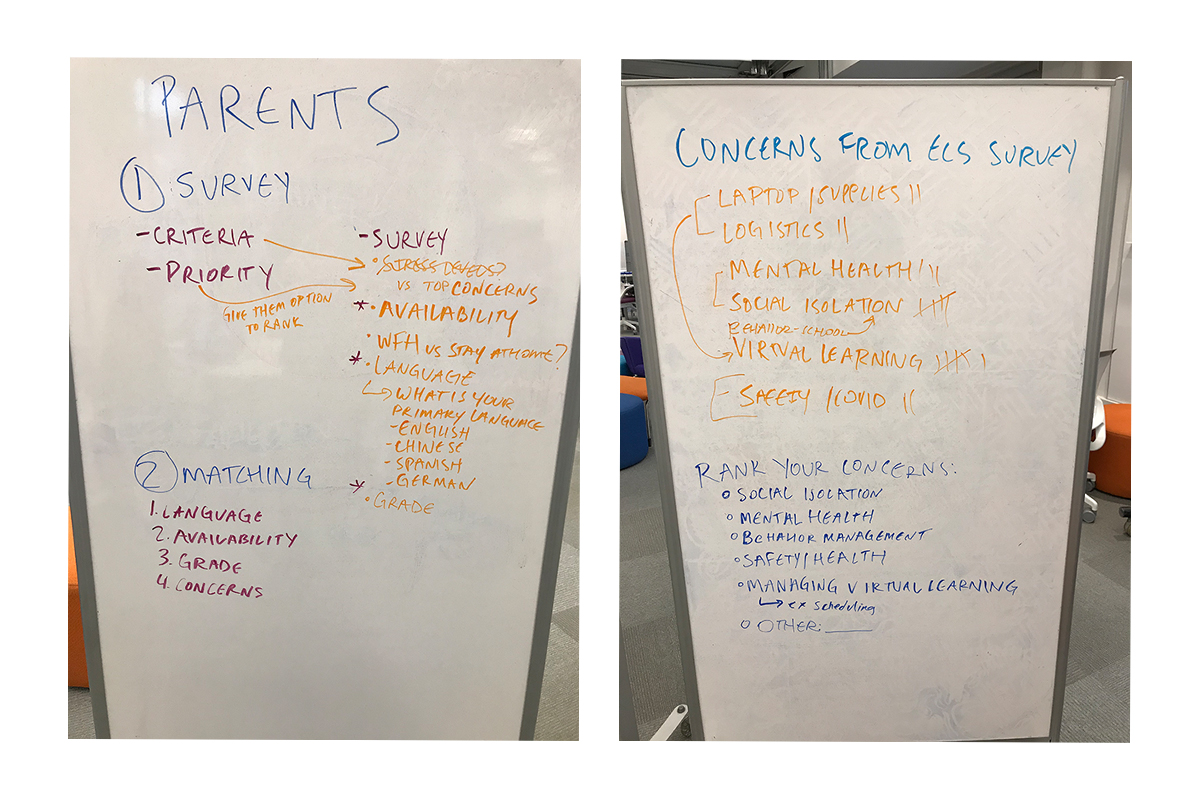 PARENTS
①: SURVEY
-CRITERIA
-PRIORITY
GIVE THEM OPTION
TO RANK
-SURVEY
• STRESS LEVELS?
VS TOP CONCERNS
* • AVAILABILITY
• WFH VS STAY AT HOME?
* • LANGUAGE
↳ WHAT IS YOUR
PRIMARY LANGUAGE
-ENGLISH
-CHINESE
-SPANISH
-GERMAN
* • GRADE
② MATCHING
1. LANGUAGE
2. AVAILABILITY
3. GRADE
4. CONCERNS
CONCERNS FROM ECS SURVEY
LAPTOP/SUPPLIES ||
LOGISTICS ||
MENTAL HEALTH/||
SOCIAL ISOLATION ||||
BEHAVIOR-SCHOOL
VIRTUAL LEARNING |||| |
SAFETY/COVID ||
RANK YOUR CONCERNS:
○ SOCIAL ISOLATION
○ MENTAL HEALTH
○ BEHAVIOR MANAGEMENT
○ SAFETY/HEALTH
○ MANAGING VIRTUAL LEARNING
↳ ex scheduling
○ OTHER: ____